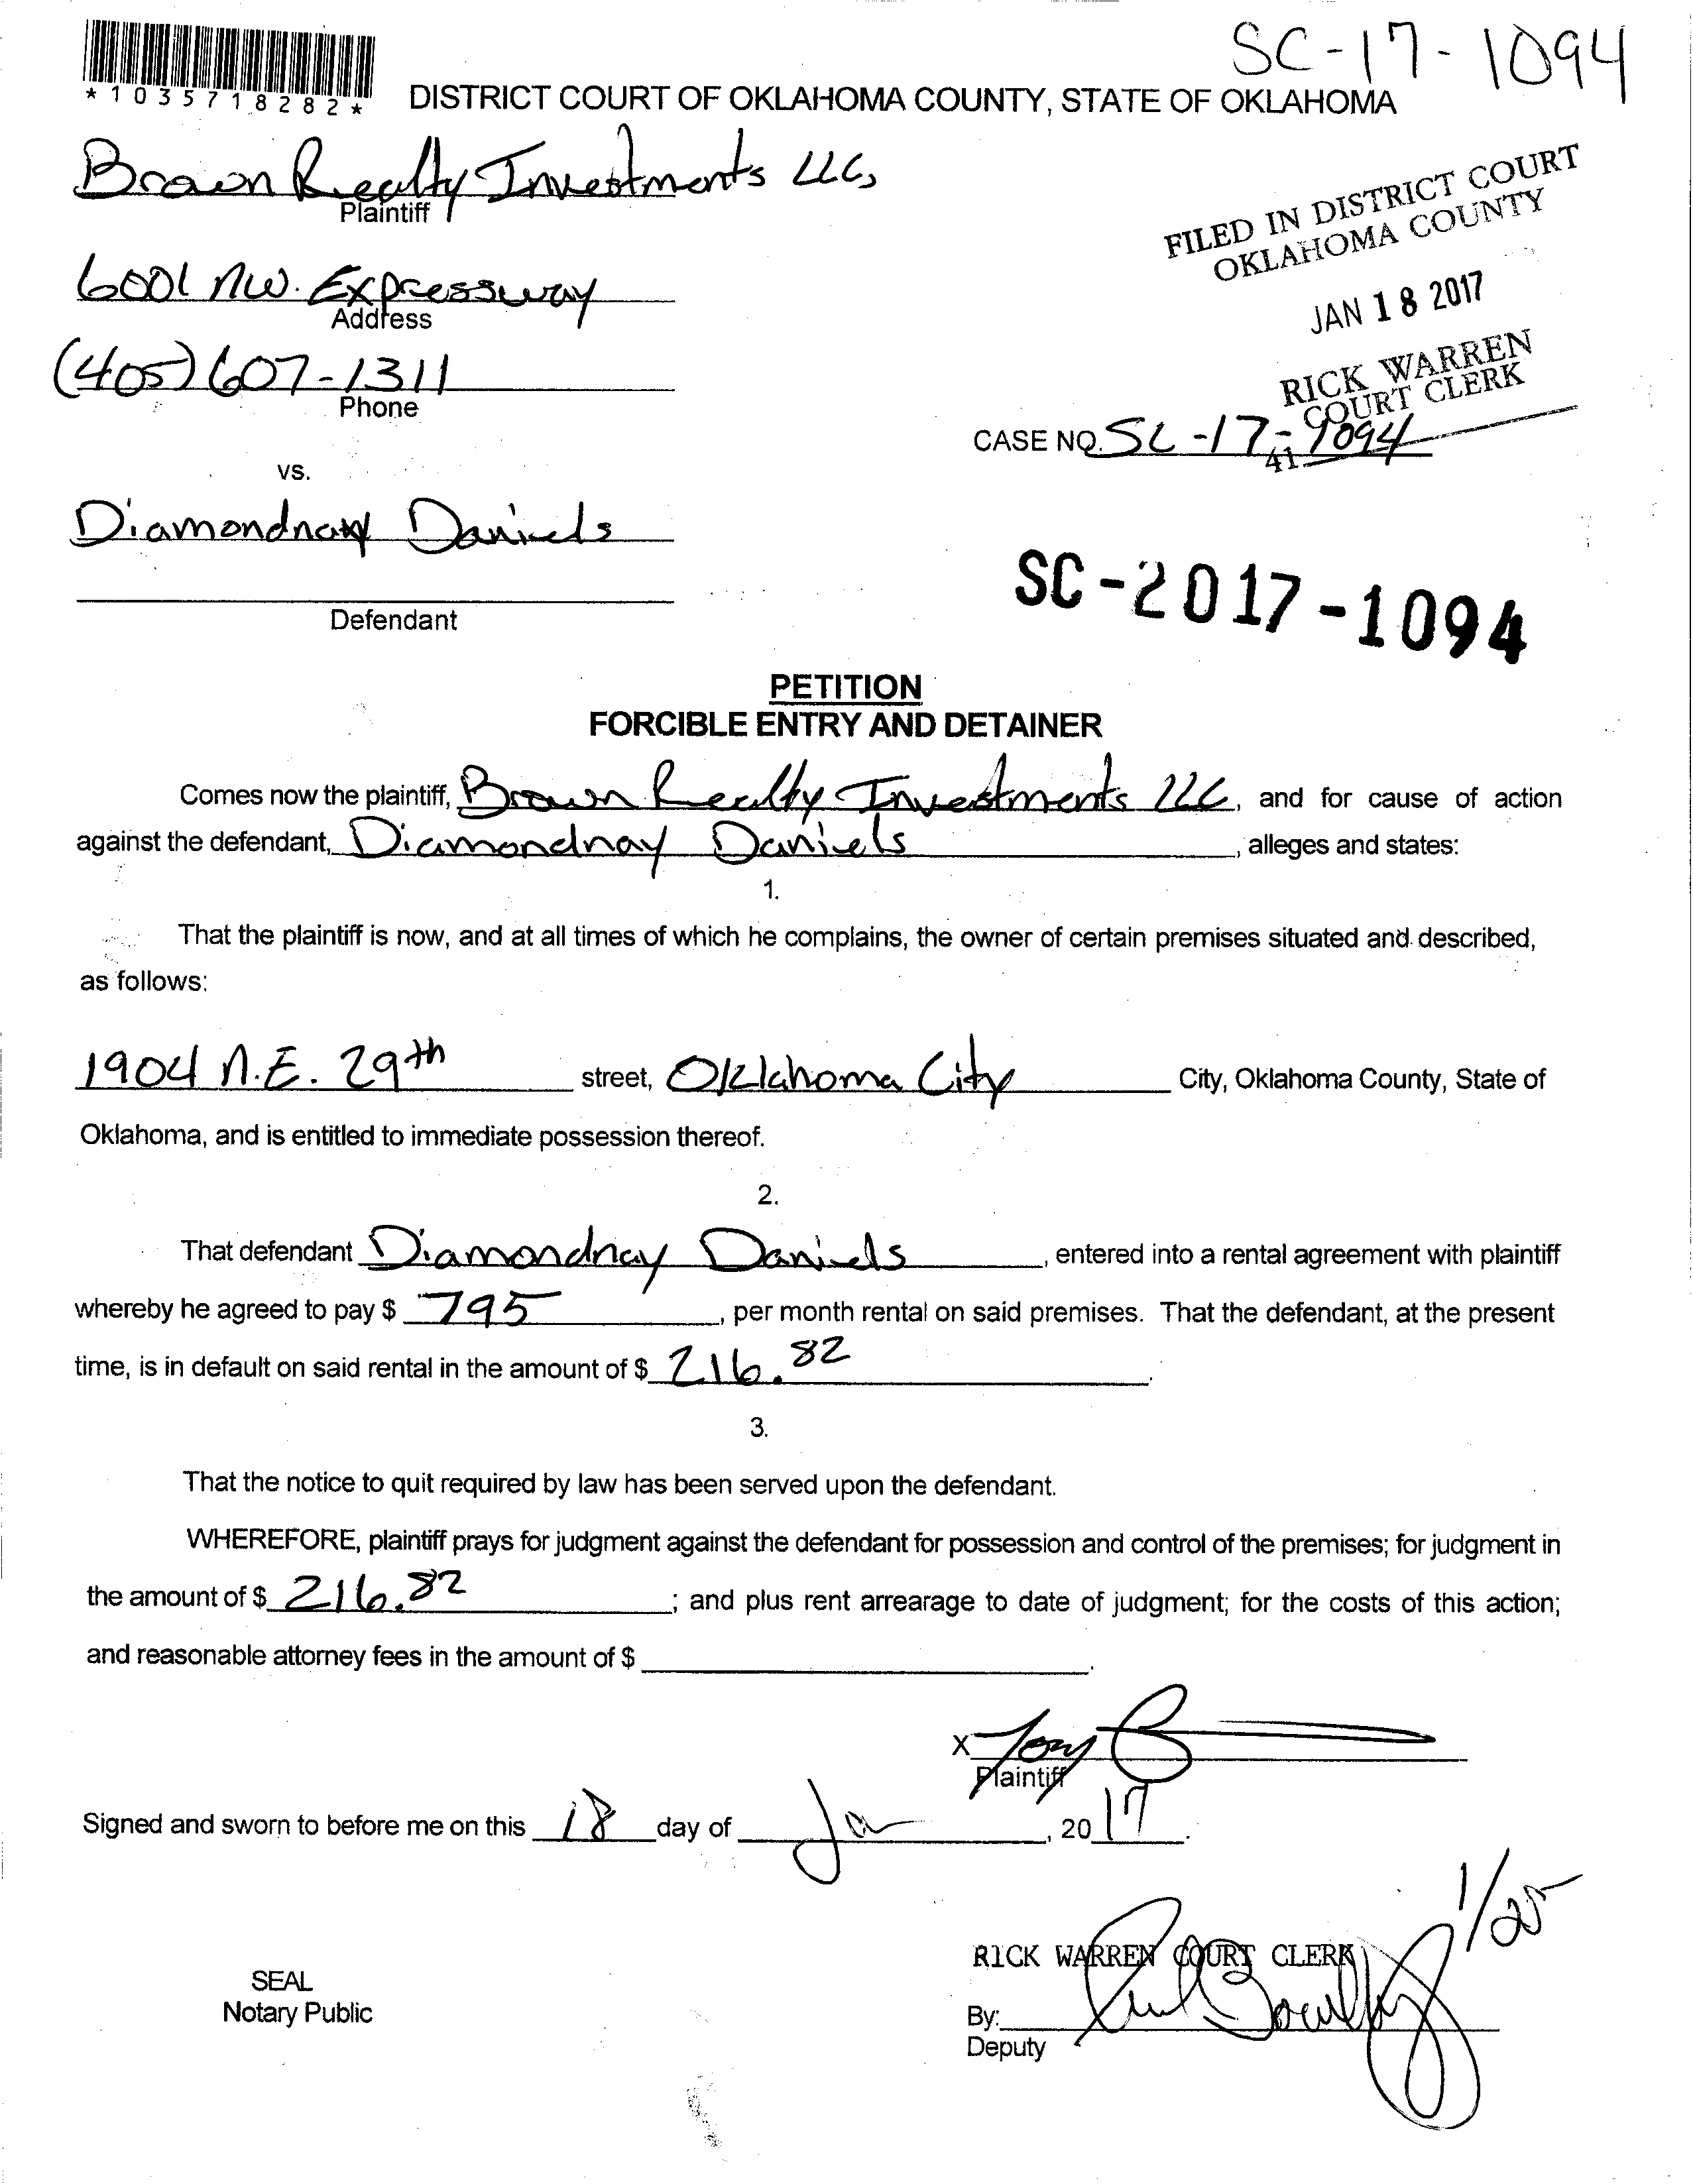 SC-17-1094
*1035718282*
DISTRICT COURT OF OKLAHOMA COUNTY, STATE OF OKLAHOMA
Brown Realty Investments LLC,
Plaintiff
FILED IN DISTRICT COURT
OKLAHOMA COUNTY
6001 NW. Expressway
Address
JAN 18 2017
(405) 607-1311
Phone
RICK WARREN
COURT CLERK
CASE NO. SC-17-1094
41
vs.
Diamondnay Daniels
Defendant
SC-2017-1094
PETITION
FORCIBLE ENTRY AND DETAINER
Comes now the plaintiff, Brown Realty Investments LLC, and for cause of action
against the defendant, Diamondnay Daniels, alleges and states:
1.
That the plaintiff is now, and at all times of which he complains, the owner of certain premises situated and described,
as follows:
1904 N.E. 29th street, Oklahoma City City, Oklahoma County, State of
Oklahoma, and is entitled to immediate possession thereof.
2.
That defendant Diamondnay Daniels, entered into a rental agreement with plaintiff
whereby he agreed to pay $ 795, per month rental on said premises. That the defendant, at the present
time, is in default on said rental in the amount of $ 216.82.
3.
That the notice to quit required by law has been served upon the defendant.
WHEREFORE, plaintiff prays for judgment against the defendant for possession and control of the premises; for judgment in
the amount of $ 216.82; and plus rent arrearage to date of judgment; for the costs of this action;
and reasonable attorney fees in the amount of $.
X Tony B
Plaintiff
Signed and sworn to before me on this 18 day of Jan, 2017.
1/25
RICK WARREN COURT CLERK
SEAL
Notary Public
By:
Deputy